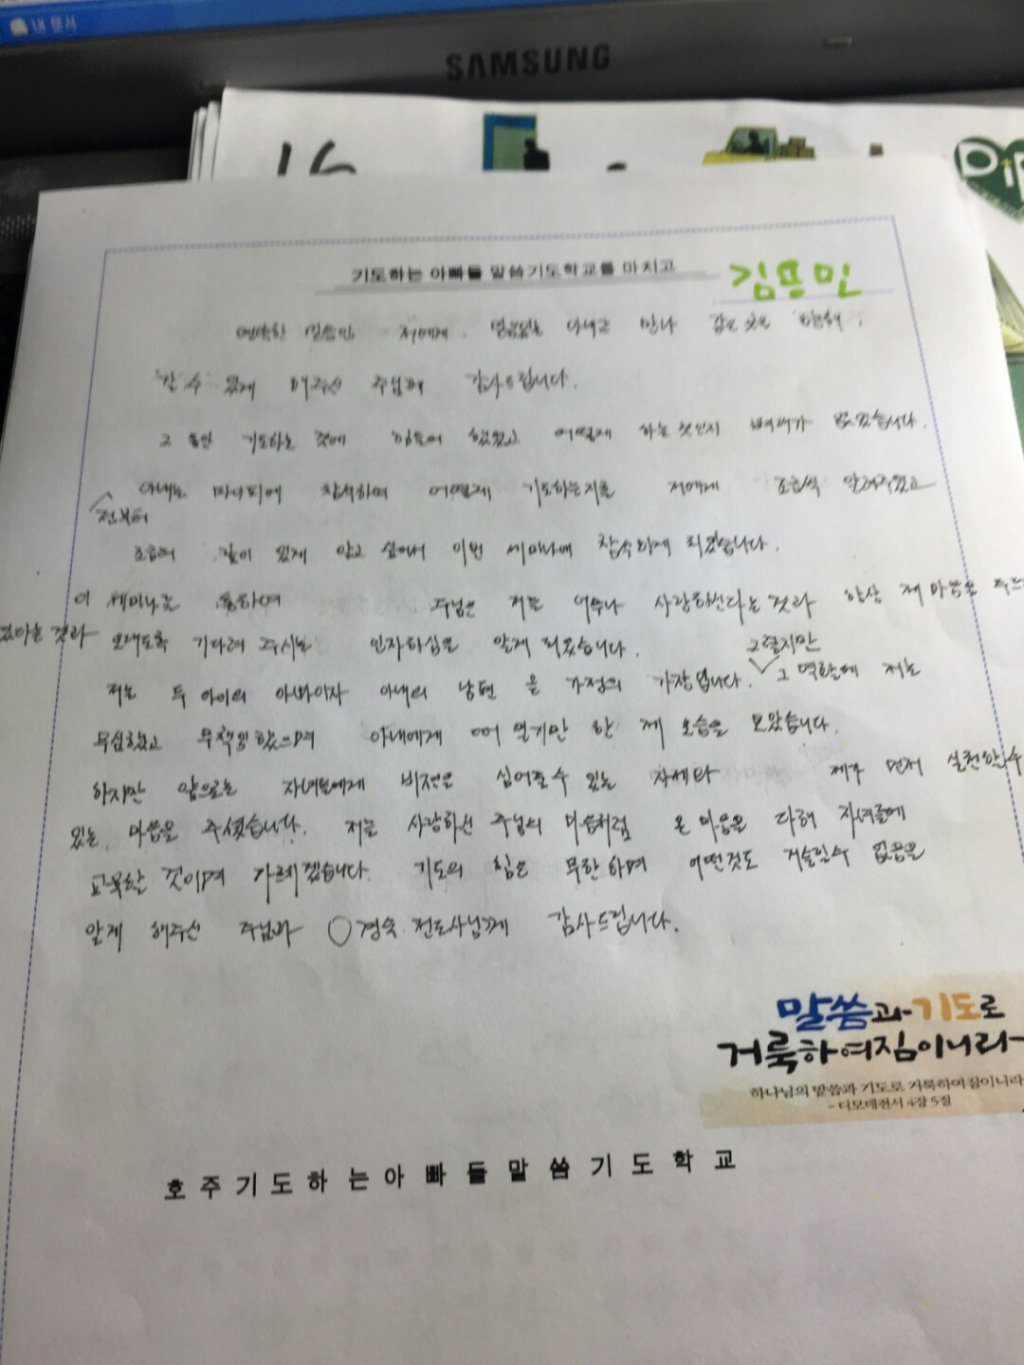 내 문서
SAMSUNG
16
Dip
기도하는 아빠들 말씀기도학교를 마치고
김용민
저에게 믿음있는 아내를 만나
갈 수 있게 해주신 주님께 감사드립니다.
그 동안 기도하는 것에 어떻게 하는것인지 없었습니다.
아내는 마더피에 참석하여 어떻게 기도하는지를 저에게 조금씩 알려주었고
전부터
조금더 깊이 있게 알고 싶어서 이번 세미나에 참석하게 되었습니다.
이 세미나를 통하여 주님은 저를 너무나 사랑하신다는 것과 항상 제 마음을
있다는 것과 오래도록 기다려 주시는 인자하심을 알게 되었습니다.
그렇지만
저는 두 아이의 아빠이자 아내의 남편 한 가정의 가장입니다. 그 역할에 저는
무심했고 무책임했으며 아내에게 떠 넘기만 한 제 모습을 보았습니다.
하지만 앞으로는 자녀들에게 비전을 심어줄수 있는 자세와 제가 먼저 실천할수
있는 마음을 주셨습니다. 저를 사랑하신 주님의 마음처럼 온 마음을 다해 자녀들에
교육할 것이며 가르치겠습니다. 기도의 힘은 무한하며 어떤것도 거슬릴수 없음을
알게 해주신 주님과 ○경숙 전도사님께 감사드립니다.
말씀과 기도로
거룩하여짐이니라
하나님의 말씀과 기도로 거룩하여짐이니라
- 디모데전서 4장 5절
호주기도하는아빠들말씀기도학교